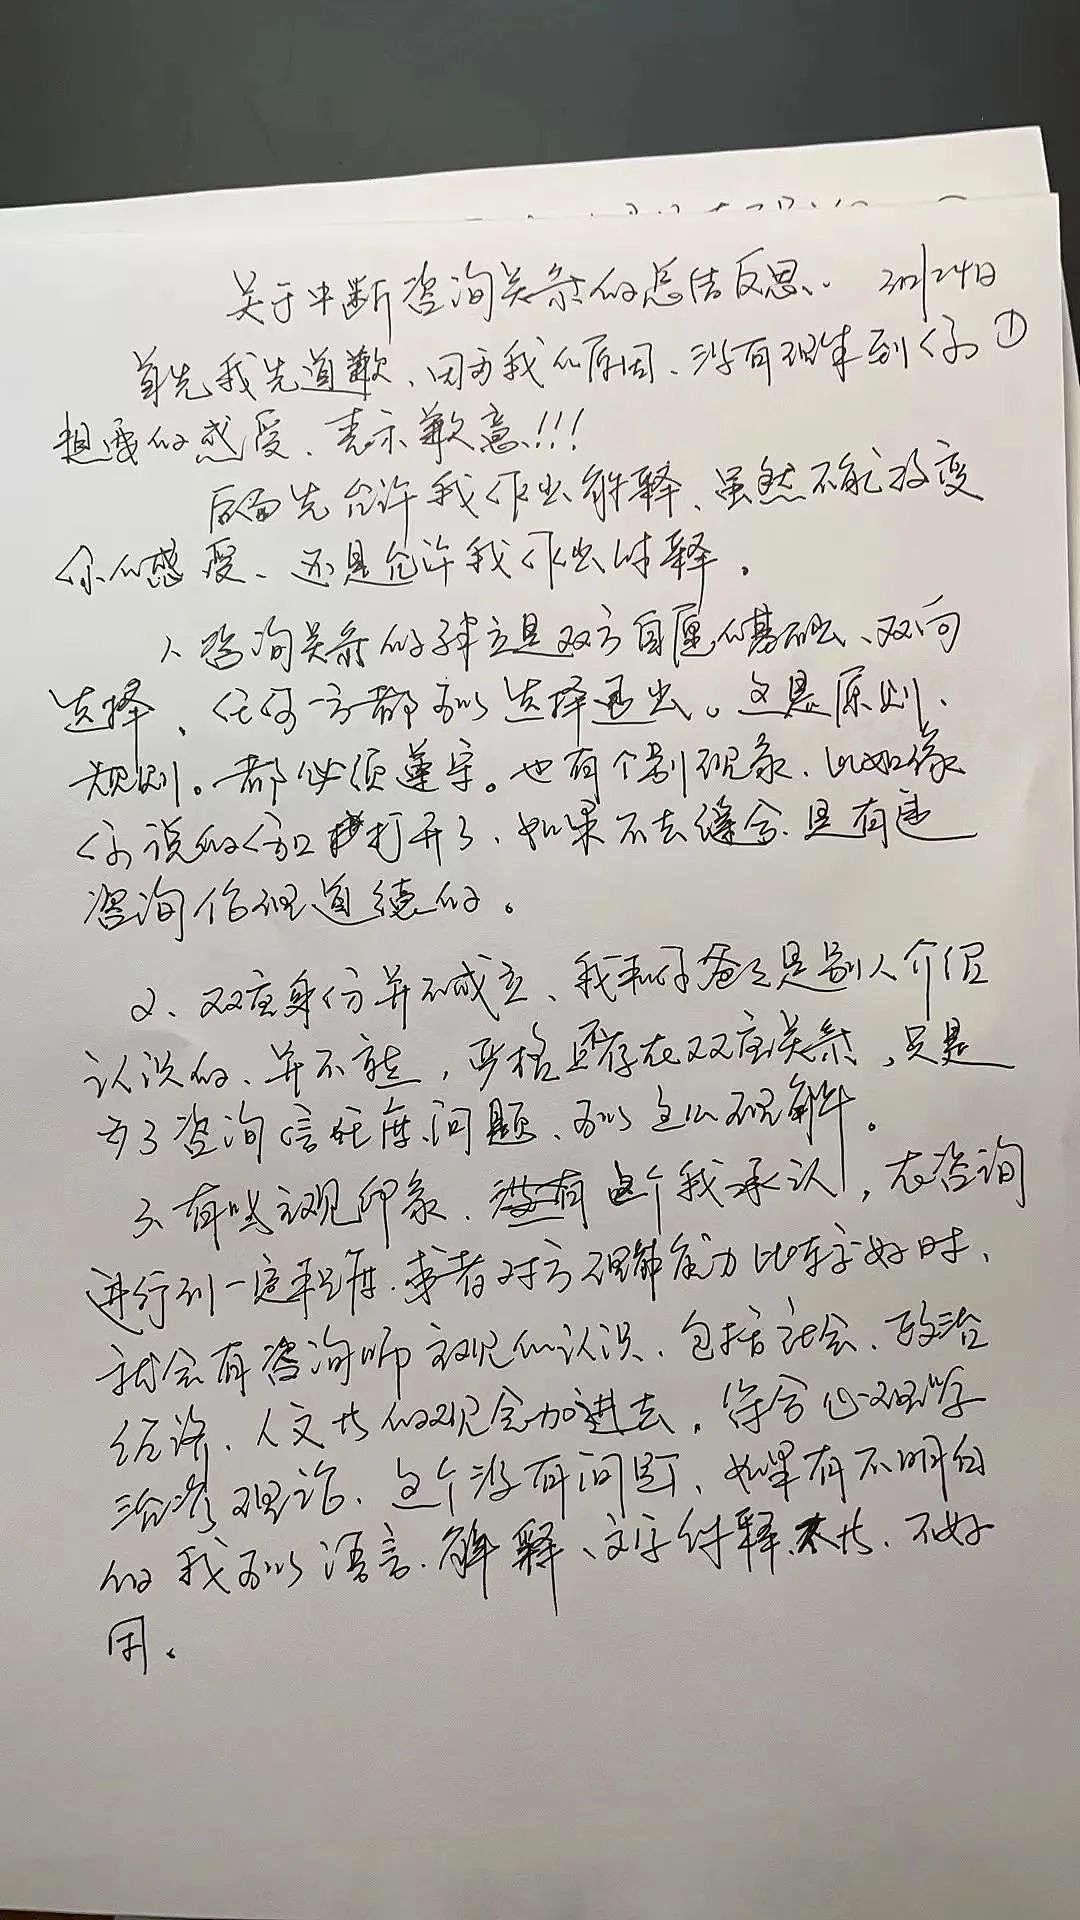 关于中断咨询关系的总结反思. 3月24日
首先我先道歉、因为我的原因、没有理解到你 ①
想要的感受、表示歉意!!!
后面先允许我作出解释、虽然不能改变
你的感受、还是允许我作出解释。
1、咨询关系的建立是双方自愿的基础、双向
选择、任何一方都可以选择退出。这是原则、
规则。都必须遵守。也有个别现象、比如像
你说的伤口打开了、如果不去缝合、是有违
咨询伦理道德的。
2、双重身份并不成立、我和你爸爸是别人介绍
认识的、并不熟，严格不存在双重关系，只是
为了咨询信任度问题、可以这么理解。
3、有些主观印象、这个我承认，在咨询
进行到一定程度、或者对方理解能力比较好时、
就会有咨询师主观的认识、包括社会、政治
经济、人文等的观念加进去，符合心理学
治疗理论、这个没有问题、如果有不明白
的我可以语言解释、文字解释太长、不好
用。